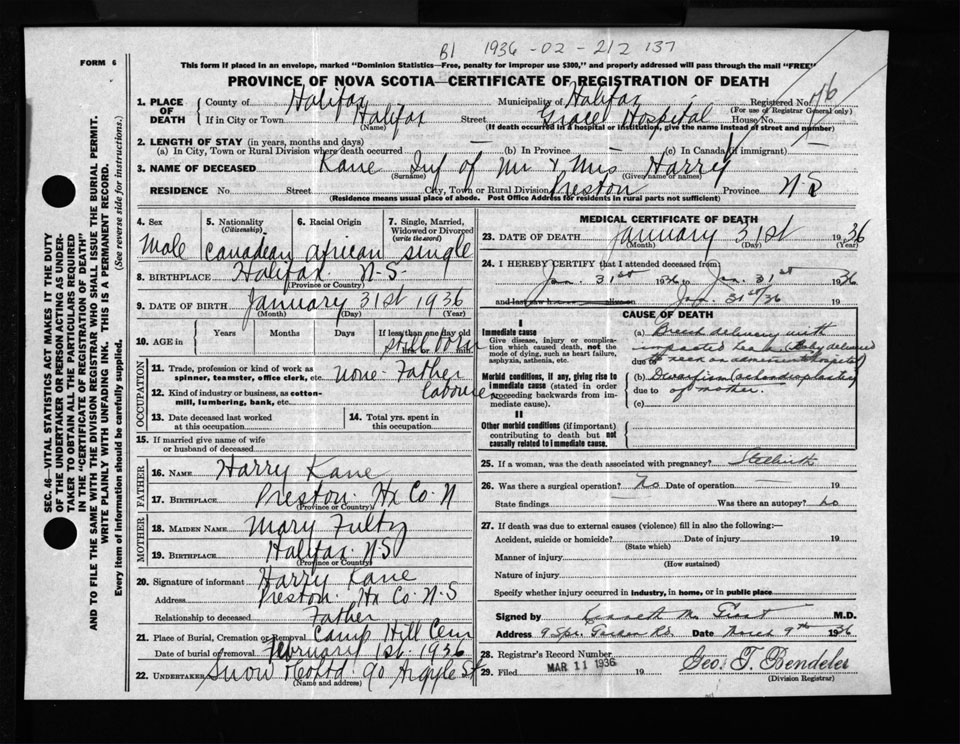 B1 1936-02-212 137
FORM 6
This form if placed in an envelope, marked "Dominion Statistics—Free, penalty for improper use $300," and properly addressed will pass through the mail "FREE"
PROVINCE OF NOVA SCOTIA—CERTIFICATE OF REGISTRATION OF DEATH
SEC. 46—VITAL STATISTICS ACT MAKES IT THE DUTY
OF THE UNDERTAKER OR PERSON ACTING AS UNDER-
TAKER TO OBTAIN ALL THE PARTICULARS REQUIRED
IN THE "CERTIFICATE OF REGISTRATION OF DEATH"
AND TO FILE THE SAME WITH THE DIVISION REGISTRAR WHO SHALL ISSUE THE BURIAL PERMIT.
WRITE PLAINLY WITH UNFADING INK. THIS IS A PERMANENT RECORD.
Every item of information should be carefully supplied. (See reverse side for instructions.)
1. PLACE OF DEATH County of Halifax Municipality of Halifax Registered No. 76
(For use of Registrar General only)
If in City or Town Halifax Street Grace Hospital House No.
(Name) (If death occurred in a hospital or institution, give the name instead of street and number)
2. LENGTH OF STAY (in years, months and days)
(a) In City, Town or Rural Division where death occurred (b) In Province (c) In Canada (if immigrant)
3. NAME OF DECEASED Kane Inf of Mr & Mrs Harry
(Surname) (Given name or names)
RESIDENCE No. Street City, Town or Rural Division Preston Province N S
(Residence means usual place of abode. Post Office Address for residents in rural parts not sufficient)
4. Sex 5. Nationality (Citizenship) 6. Racial Origin 7. Single, Married, Widowed or Divorced (write the word)
Male Canadian African single
8. BIRTHPLACE Halifax N-S-
(Province or Country)
9. DATE OF BIRTH January 31st 1936
(Month) (Day) (Year)
10. AGE in Years Months Days If less than one day old
still born
OCCUPATION
11. Trade, profession or kind of work as spinner, teamster, office clerk, etc. none - Father
12. Kind of industry or business, as cotton-mill, lumbering, bank, etc. labourer
13. Date deceased last worked at this occupation
14. Total yrs. spent in this occupation
15. If married give name of wife or husband of deceased
FATHER
16. NAME Harry Kane
17. BIRTHPLACE Preston Hx Co. N
(Province or Country)
MOTHER
18. MAIDEN NAME Mary Fultz
19. BIRTHPLACE Halifax N S
(Province or Country)
20. Signature of informant Harry Kane
Address Preston Hx Co. N.S
Relationship to deceased Father
21. Place of Burial, Cremation or Removal Camp Hill Cem
Date of burial or removal February 1st 1936
22. UNDERTAKER Snow & Co Ltd 90 Argyle St
(Name and address)
MEDICAL CERTIFICATE OF DEATH
23. DATE OF DEATH January 31st 1936
(Month) (Day) (Year)
24. I HEREBY CERTIFY that I attended deceased from
Jan. 31st 1936 to Jan. 31st 1936
and last saw h alive on Jan. 31st/36 19
CAUSE OF DEATH
I
Immediate cause
Give disease, injury or complication which caused death, not the mode of dying, such as heart failure, asphyxia, asthenia, etc.
(a) Breech delivery with
impacted head (Baby delivered
due to to neck on admission to hospital)
Morbid conditions, if any, giving rise to immediate cause (stated in order proceeding backwards from immediate cause).
(b) Dwarfism (achondroplastic)
due to of mother.
(c)
II
Other morbid conditions (if important) contributing to death but not causally related to immediate cause.
25. If a woman, was the death associated with pregnancy? Stillbirth
26. Was there a surgical operation? No Date of operation — 19
State findings — Was there an autopsy? No
27. If death was due to external causes (violence) fill in also the following:—
Accident, suicide or homicide? Date of injury 19
(State which)
Manner of injury
(How sustained)
Nature of injury
Specify whether injury occurred in industry, in home, or in public place
Signed by Kenneth M. Grant M.D.
Address 9 Spr. Garden Rd. Date March 9th 1936
28. Registrar's Record Number
29. Filed MAR 11 1936 19 Geo. T. Bendeler
(Division Registrar)